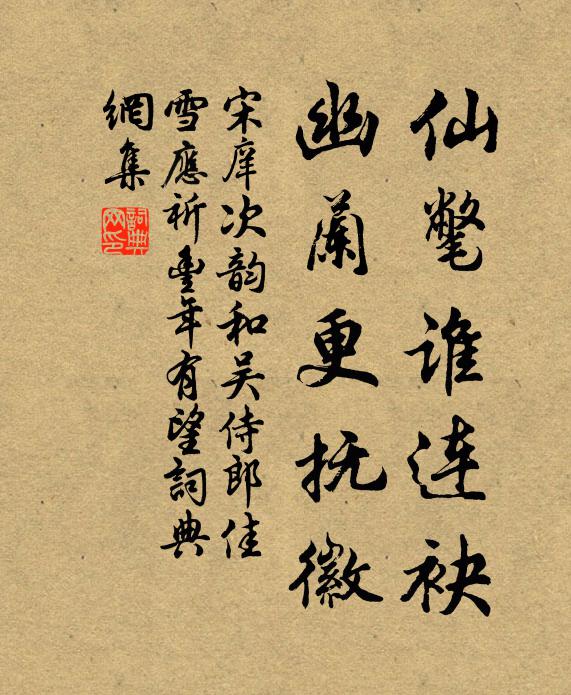 仙氅谁连袂
幽蘭更抚徽
宋庠次韵和吴侍郎佳
雪應祈豐年有望詞典
網集
詞典
网印